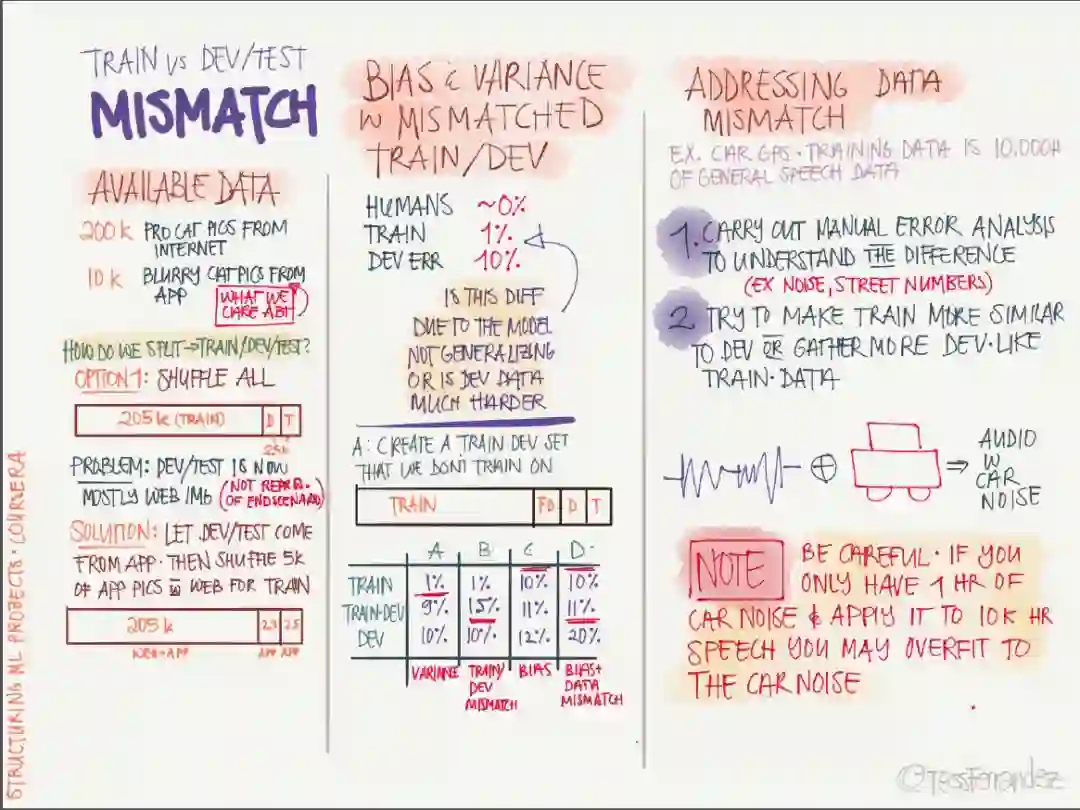 TRAIN VS DEV/TEST
MISMATCH
AVAILABLE DATA
200k PRO CAT PICS FROM
INTERNET
10k BLURRY CAT PICS FROM
APP
WHAT WE
CARE ABT
HOW DO WE SPLIT→TRAIN/DEV/TEST?
OPTION 1: SHUFFLE ALL
205k (TRAIN) D T
PROBLEM: DEV/TEST IS NOW
MOSTLY WEB IMG (NOT REPR.
OF END SCENARIO)
SOLUTION: LET DEV/TEST COME
FROM APP. THEN SHUFFLE 5K
OF APP PICS W WEB FOR TRAIN
205k 2.5 2.5
WEB+APP APP APP
BIAS & VARIANCE
W MISMATCHED
TRAIN/DEV
HUMANS ~0%
TRAIN 1%
DEV ERR 10%
IS THIS DIFF
DUE TO THE MODEL
NOT GENERALIZING
OR IS DEV DATA
MUCH HARDER
A: CREATE A TRAIN DEV SET
THAT WE DONT TRAIN ON
TRAIN D T
A B C D
TRAIN 1% 1% 10% 10%
TRAIN-DEV 9% 1.5% 11% 11%
DEV 10% 10% 12% 20%
VARIANCE TRAIN/ BIAS BIAS+
DEV DATA
MISMATCH MISMATCH
ADDRESSING DATA
MISMATCH
EX. CAR GPS · TRAINING DATA IS 10.000H
OF GENERAL SPEECH DATA
1. CARRY OUT MANUAL ERROR ANALYSIS
TO UNDERSTAND THE DIFFERENCE
(EX NOISE, STREET NUMBERS)
2 TRY TO MAKE TRAIN MORE SIMILAR
TO DEV OR GATHER MORE DEV-LIKE
TRAIN-DATA
AUDIO
W
CAR
NOISE
NOTE
BE CAREFUL · IF YOU
ONLY HAVE 1 HR OF
CAR NOISE & APPLY IT TO 10K HR
SPEECH YOU MAY OVERFIT TO
THE CAR NOISE
STRUCTURING ML PROJECTS · COURSERA
@TessFerrandez